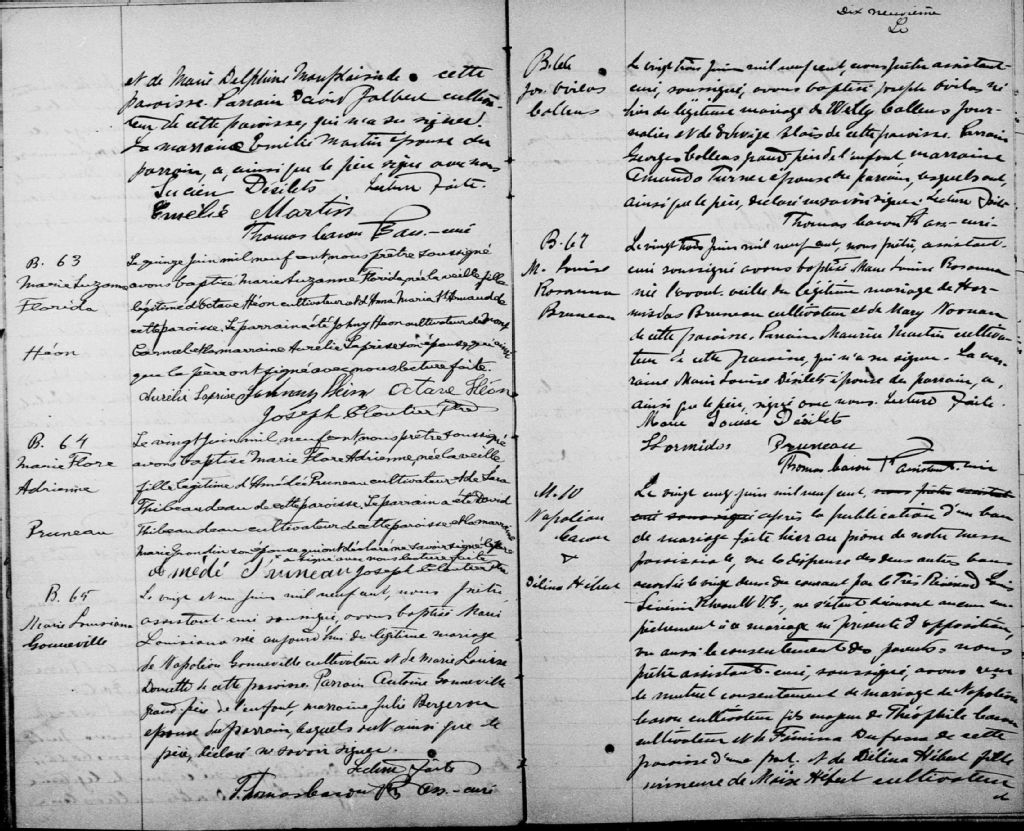 et de Marie Delphine Monplaisir de cette
paroisse. Parrain David Jalbert cultiva-
teur de cette paroisse, qui n'a su signer
La marraine Emilie Martin épouse du
parrain, a, ainsi que le père signé avec nous
Lucien Désilets Lecture faite.
Emélie Martin
Thomas Caron Ptre ass.-curé
B. 63
Marie Suzanne
Florida
Héon
Le quinze juin mil neuf cent, nous prêtre soussigné
avons baptisé Marie Suzanne Florida, née la veille fille
légitime d'Octave Héon cultivateur et d'Anna Maria St Arnaud de
cette paroisse. Le parrain a été Johny Héon cultivateur de
Carmel et la marraine Aurélie Laprise son épouse qui ainsi
que le père ont signé avec nous lecture faite.
Aurélie Laprise Octave Héon
Joseph Cloutier Ptre
B. 64
Marie Flore
Adrienne
Pruneau
Le vingt juin mil neuf cent nous prêtre soussigné
avons baptisé Marie Flore Adrienne, née la veille
fille légitime d'Amédée Pruneau cultivateur et de Lara
Thibeaudeau de cette paroisse. Le parrain a été David
Thibeaudeau cultivateur de cette paroisse et la marraine
Marie Grondin son épouse qui ont déclaré ne savoir signé le père
a signé avec nous lecture faite
Amédé Pruneau Joseph Cloutier Ptre
B. 65
Marie Louisiana
Gonneville
Le vingt et un juin mil neuf cent, nous prêtre
assistant-curé soussigné, avons baptisé Marie
Louisiana née aujourd'hui du légitime mariage
de Napoléon Gonneville cultivateur et de Marie Louise
Doucette de cette paroisse. Parrain Antoine Gonneville
grand père de l'enfant, marraine Julie Bergeron
épouse du parrain, lesquels ont ainsi que le
père, déclaré ne savoir signer.
Lecture faite
Thomas Caron Ptre Ass.-curé
Dix neuvième
Le
B. 66
Jos. Ovilas
Collens
Le vingt trois juin mil neuf cent, nous prêtre assistant-
curé, soussigné, avons baptisé Joseph Ovilas né
hier du légitime mariage de Willy Collens jour-
nalier et de Edwige Blais de cette paroisse. Parrain
Georges Collens grand père de l'enfant, marraine
Amanda Turner épouse du parrain, lesquels ont,
ainsi que le père, déclaré ne savoir signer. Lecture Faite
Thomas Caron Ptre ass-curé.
B. 67
M. Louise
Rosanna
Bruneau
Le vingt trois juin mil neuf cent, nous prêtre, assistant-
curé soussigné avons baptisé Marie Louise Rosanna
née l'avant-veille du légitime mariage de Hor-
misdas Bruneau cultivateur et de Mary Noonan
de cette paroisse. Parrain Maurice Martin cultiva-
teur de cette paroisse, qui n'a su signer. La mar-
raine Marie Louise Désilets épouse du parrain, a,
ainsi que le père, signé avec nous. Lecture Faite.
Marie Louise Désilets
Hormidos Pruneau
Thomas Caron Ptre assistant-curé
M. 10
Napoléon
Caron
&
Délina Hébert
Le vingt cinq juin mil neuf cent, nous prêtre assistant
curé soussigné après la publication d'un ban
de mariage faite hier au prône de notre messe
paroissiale, vu la dispense des deux autres bans
accordée le vingt deux du courant par le Très Révérend Louis
Séverin Rheault V.G., ne s'étant découvert aucun em-
pêchement à ce mariage ni présenté d'opposition,
vu aussi le consentement des parents - nous
prêtre assistant-curé, soussigné, avons reçu
le mutuel consentement de mariage de Napoléon
Caron cultivateur fils majeur de Théophile Caron
cultivateur et de Fémina Dufresne de cette
paroisse d'une part. et de Délina Hébert fille
mineure de Moïse Hébert cultivateur
et